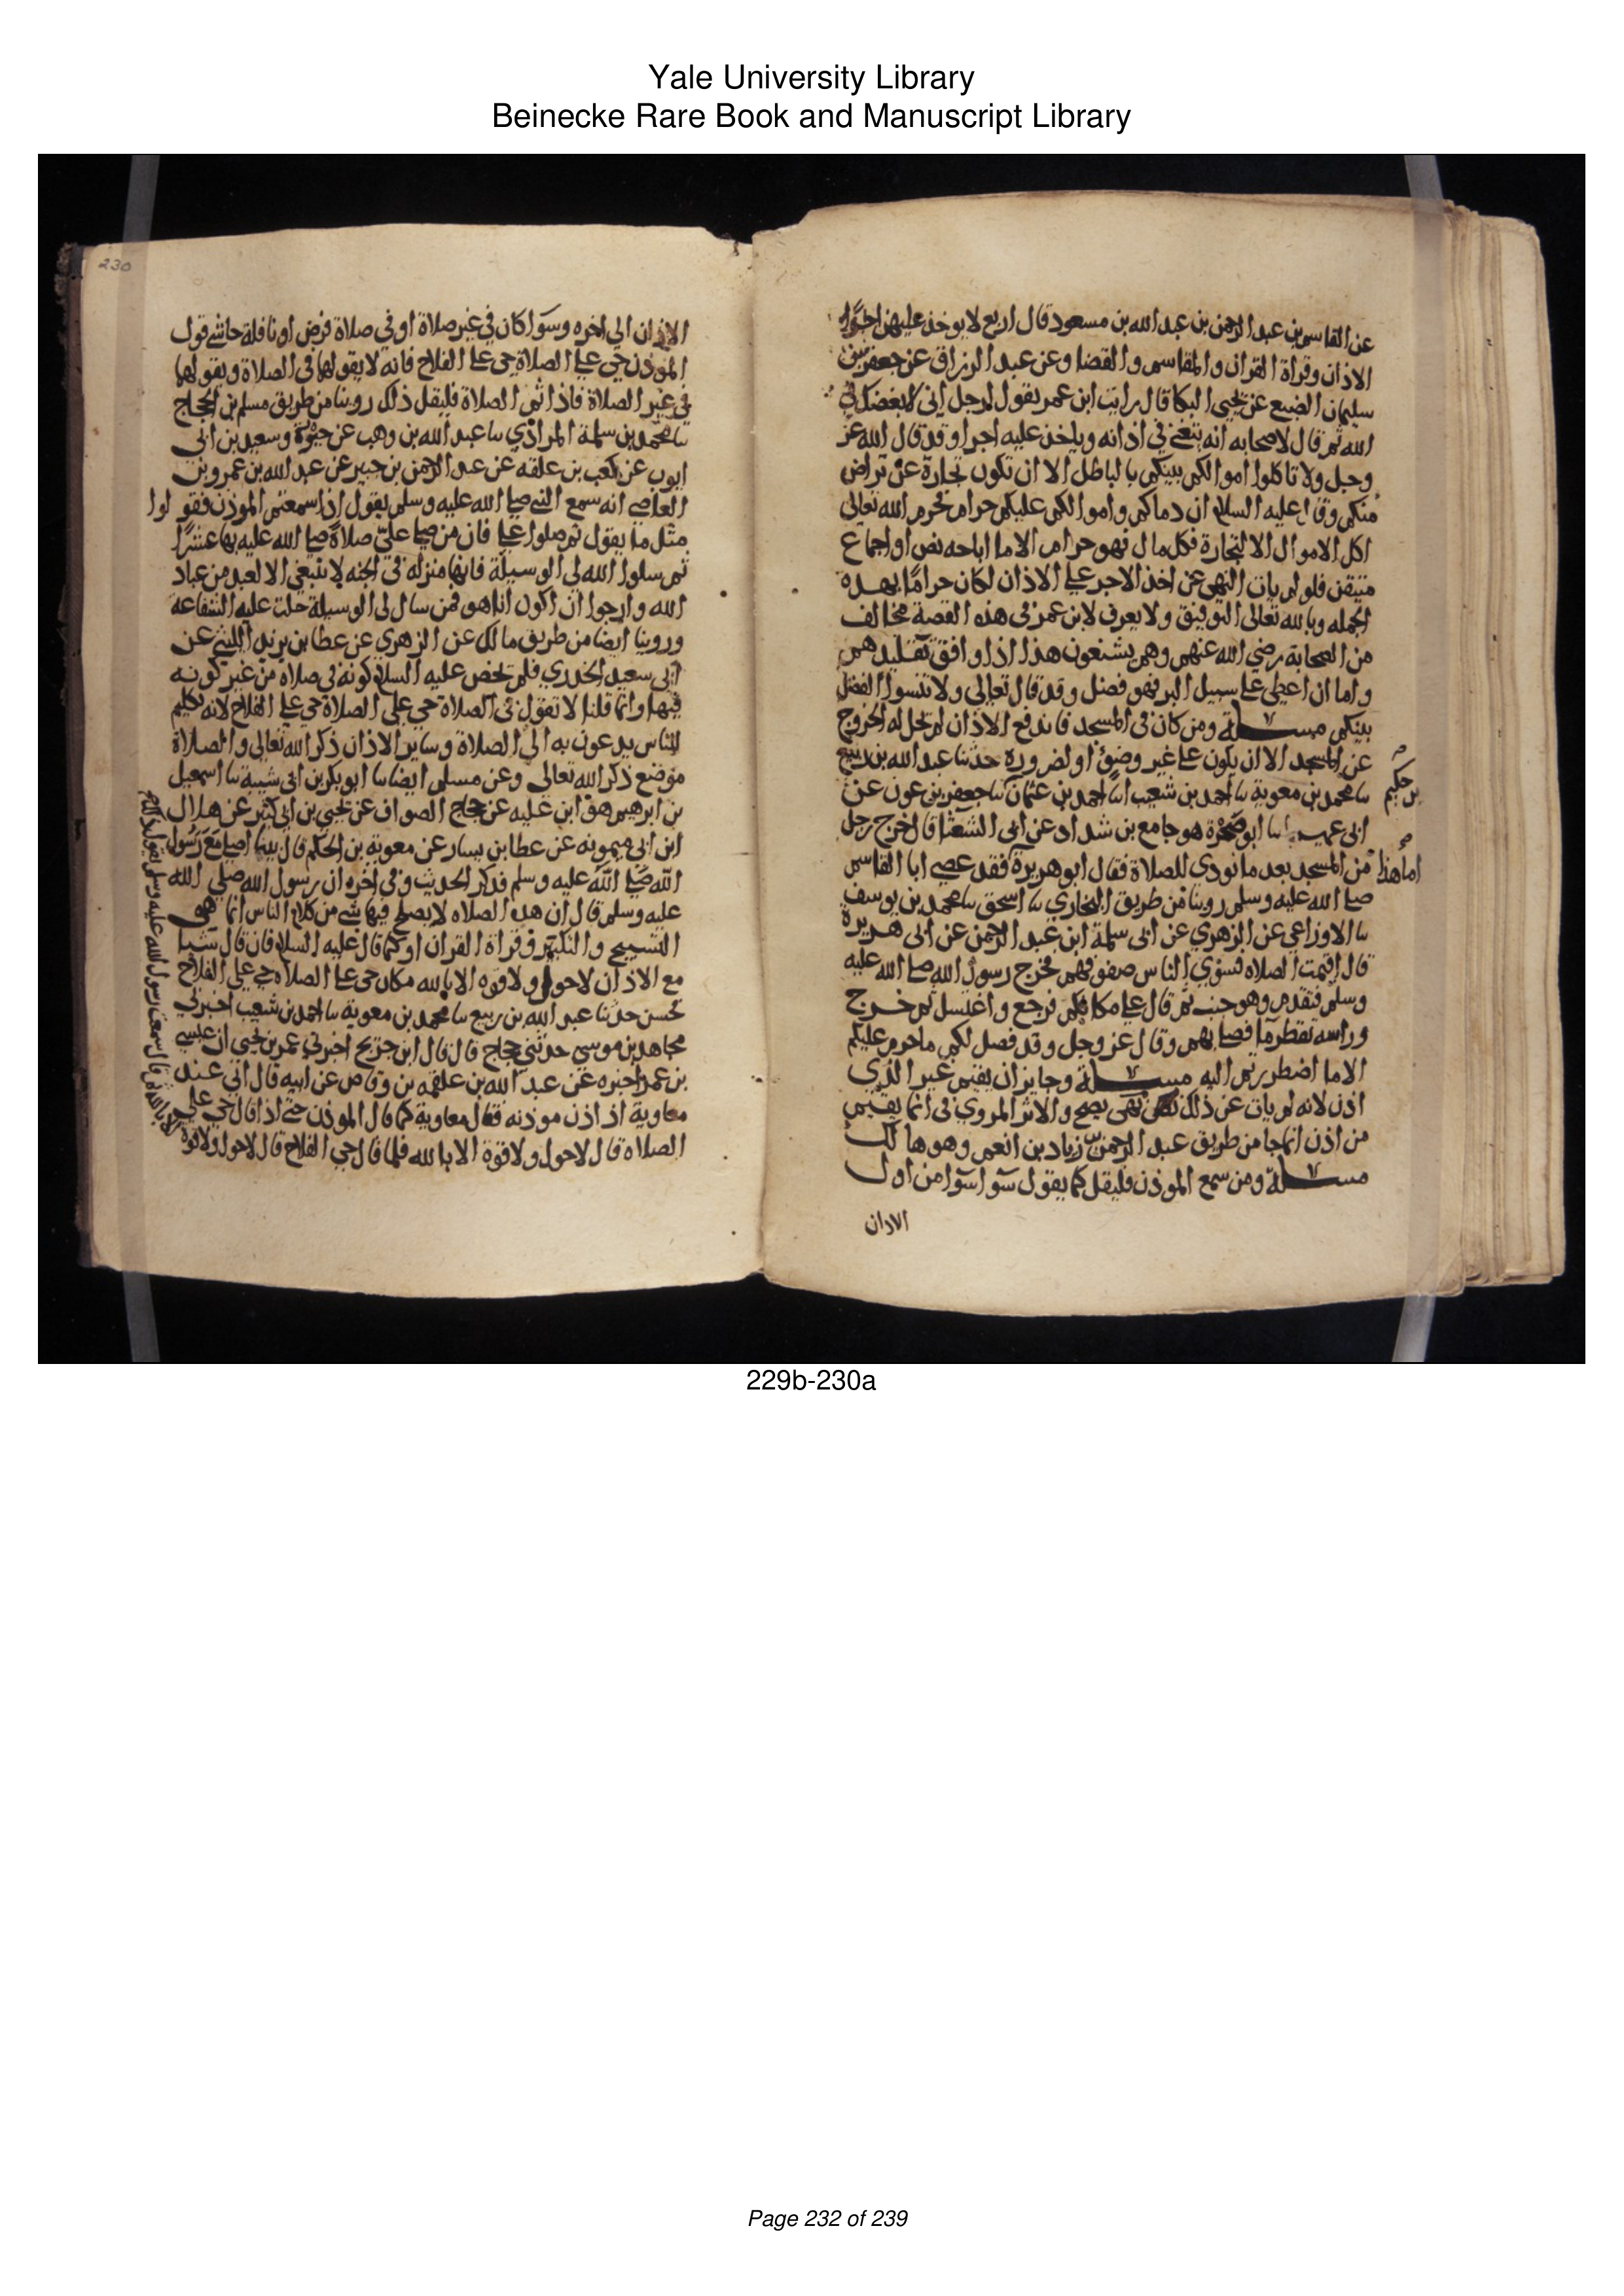 Yale University Library
Beinecke Rare Book and Manuscript Library
عن القاسم بن عبد الرحمن بن عبد الله بن مسعود قال اربع لا يوخذ عليهن اجرًا
الاذان وقراة القران والمقاسم والقضا وعن عبد الرزاق عن جعفر بن
سليمان الضبعي عن يحيى البكا قال رايت ابن عمر يقول لرجل اني لابغضك في
الله ثم قال لاصحابه انه يتغني في اذانه وياخذ عليه اجرا وقد قال الله عز
وجل ولا تاكلوا اموالكم بينكم بالباطل الا ان تكون تجارة عن تراض
منكم وقال عليه السلام ان دماكم واموالكم عليكم حرام فحرم الله تعالى
اكل الاموال الا لتجارة فكل مال فهو حرام الا ما اباحه نص او اجماع
متيقن فلو لم يات النهي عن اخذ الاجر على الاذان لكان حرامًا بهذه
الجمله وبالله تعالى التوفيق ولا يعرف لابن عمر في هذه القصة مخالف
من الصحابة رضي الله عنهم وهم يشنعون هذا اذا وافق تقليدهم
واما ان اعطى على سبيل البر فهو فضل وقد قال تعالى ولا تنسوا الفضل
بينكم مسـلة ومن كان في المسجد فاندفع الاذان لم يحل له الخروج
عن المسجد الا ان يكون على غير وضؤ او لضرورة حدثنا عبد الله بن ربيع
سا محمد بن معوية سا احمد بن شعيب اسا احمد بن عثمان سا جعفر بن عون عن
بن حكيم
ابى عميس سا ابو صخرة هو جامع بن شداد عن ابى الشعثا قال خرج رجل
من المسجد بعد ما نودى للصلاة فقال ابو هريرة فقد عصى ابا القاسم
اما هذا
صلى الله عليه وسلم روينا من طريق البخاري سا اسحق سا محمد بن يوسف
سا الاوزاعي عن الزهري عن ابى سلمة ابن عبد الرحمن عن ابى هريرة
قال اقيمت الصلاه فسوي الناس صفوفهم فخرج رسول الله صلى الله عليه
وسلم فتقدم وهو جنب ثم قال على مكانكم فرجع واغتسل ثم خرج
وراسه تقطر ما فصلى بهم وقال عز وجل وقد فصل لكم ما حرم عليكم
الا ما اضطررتم اليه مسـلة وجايز ان يقيم غير الذي
اذن لانه لم يات عن ذلك نهى يصح والاثر المروي في انما يقيم
من اذن انما جا من طريق عبد الرحمن بن زياد بن انعم وهو هالك
مسـلة ومن سمع الموذن فليقل كما يقول سوا سوا من اول
الاذان
230
الاذان الي اخره وسوا كان في غير صلاة او في صلاة فرض او نافلة حاشى قول
الموذن حي على الصلاة حي على الفلاح فانه لا يقولها في الصلاة ويقولها
في غير الصلاة فاذا اتم الصلاة فليقل ذلك روينا من طريق مسلم بن الحجاج
سا محمد بن سلمة المرادي سا عبد الله بن وهب عن حيوة وسعيد بن ابى
ايوب عن كعب بن علقه عن عبد الرحمن بن جبير عن عبد الله بن عمرو بن
العاصي انه سمع النبي صلى الله عليه وسلم يقول اذا سمعتم الموذن فقولوا
مثل ما يقول ثم صلوا علي فان من صلى عليّ صلاة صلى الله عليه بها عشرًا
ثم سلوا الله لي الوسيلة فانها منزله في الجنه لا تنبغي الا لعبد من عباد
الله وارجوا ان اكون انا هو فمن سال لي الوسيلة حلت عليه الشفاعة
وروينا ايضا من طريق مالك عن الزهري عن عطا بن يزيد الليثي عن
ابى سعيد الخدري فلم يخص عليه السلام كونه في صلاه من غير كونه
فيها وانما قلنا لا تقول في الصلاة حي على الصلاة حي على الفلاح لانه تكليم
للناس يدعون به الي الصلاة وساير الاذان ذكر الله تعالى والصلاة
موضع ذكر الله تعالى وعن مسلم ايضا سا ابو بكر بن ابى شيبة سا اسمعيل
بن ابرهيم هو ابن عليه عن حجاج الصواف عن يحيى بن ابى كثير عن هلال
ابن ابى ميمونه عن عطا بن يسار عن معوية بن الحكم قال بينا اصلي مع رسول
الله صلى الله عليه وسلم فذكر الحديث وفي اخره ان رسول الله صلي الله
عليه وسلم قال ان هذه الصلاه لا يصلح فيها شي من كلام الناس انما هي
التسبيح والتكبير وقراة القران او كما قال عليه السلام فان قال شيا
مع الاذان لا حول ولا قوه الا بالله مكان حي على الصلاه حي على الفلاح
فحسن حدثنا عبد الله بن ربيع سا محمد بن معوية سا احمد بن شعيب اخبرني
مجاهد بن موسي حدثني حجاج قال قال ابن جريج اخبرني عمر بن يحيي ان عيسي
بن عمر اخبره عن عبد الله بن علقمه بن وقاص عن ابيه قال اني عند
معاوية اذ اذن موذنه فقال معاوية كما قال الموذن حتى اذا قال حي على
الصلاه قال لا حول ولا قوة الا بالله فلما قال حي الفلاح قال لا حول ولا قوة
الا بالله ثم قال سمعت رسول الله صلى الله عليه وسلم يقول ذلك
229b-230a
Page 232 of 239